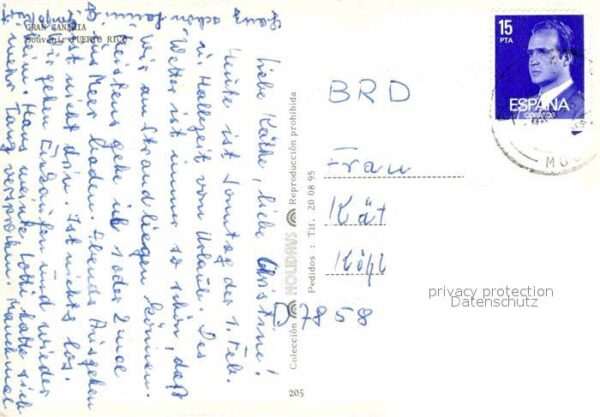 GRAN CANARIA
Souvenir PUERTO RICO
Liebe Käthe, liebe Christine!
Heute ist Sonntag der 1. Feb.
u. Halbzeit vom Urlaub. Das
Wetter ist immer so schön, daß
wir am Strand liegen können.
Meistens gehe ich 1 oder 2 mal
ins Meer baden. Abends Ausgehen
ist nicht drin. Ist nichts los.
Wir gehen Einkaufen und wieder
heim. Hans meinte Lotti hätte sich
mehr Tanz versprochen. Manchmal
ganz schön
Colección HOLIDAYS Reproducción prohibida
Pedidos : Tlf. 20 08 95
205
15
PTA
ESPAÑA
CORREOS
BRD
Frau
Kät
Köhl
D 7858
privacy protection
Datenschutz